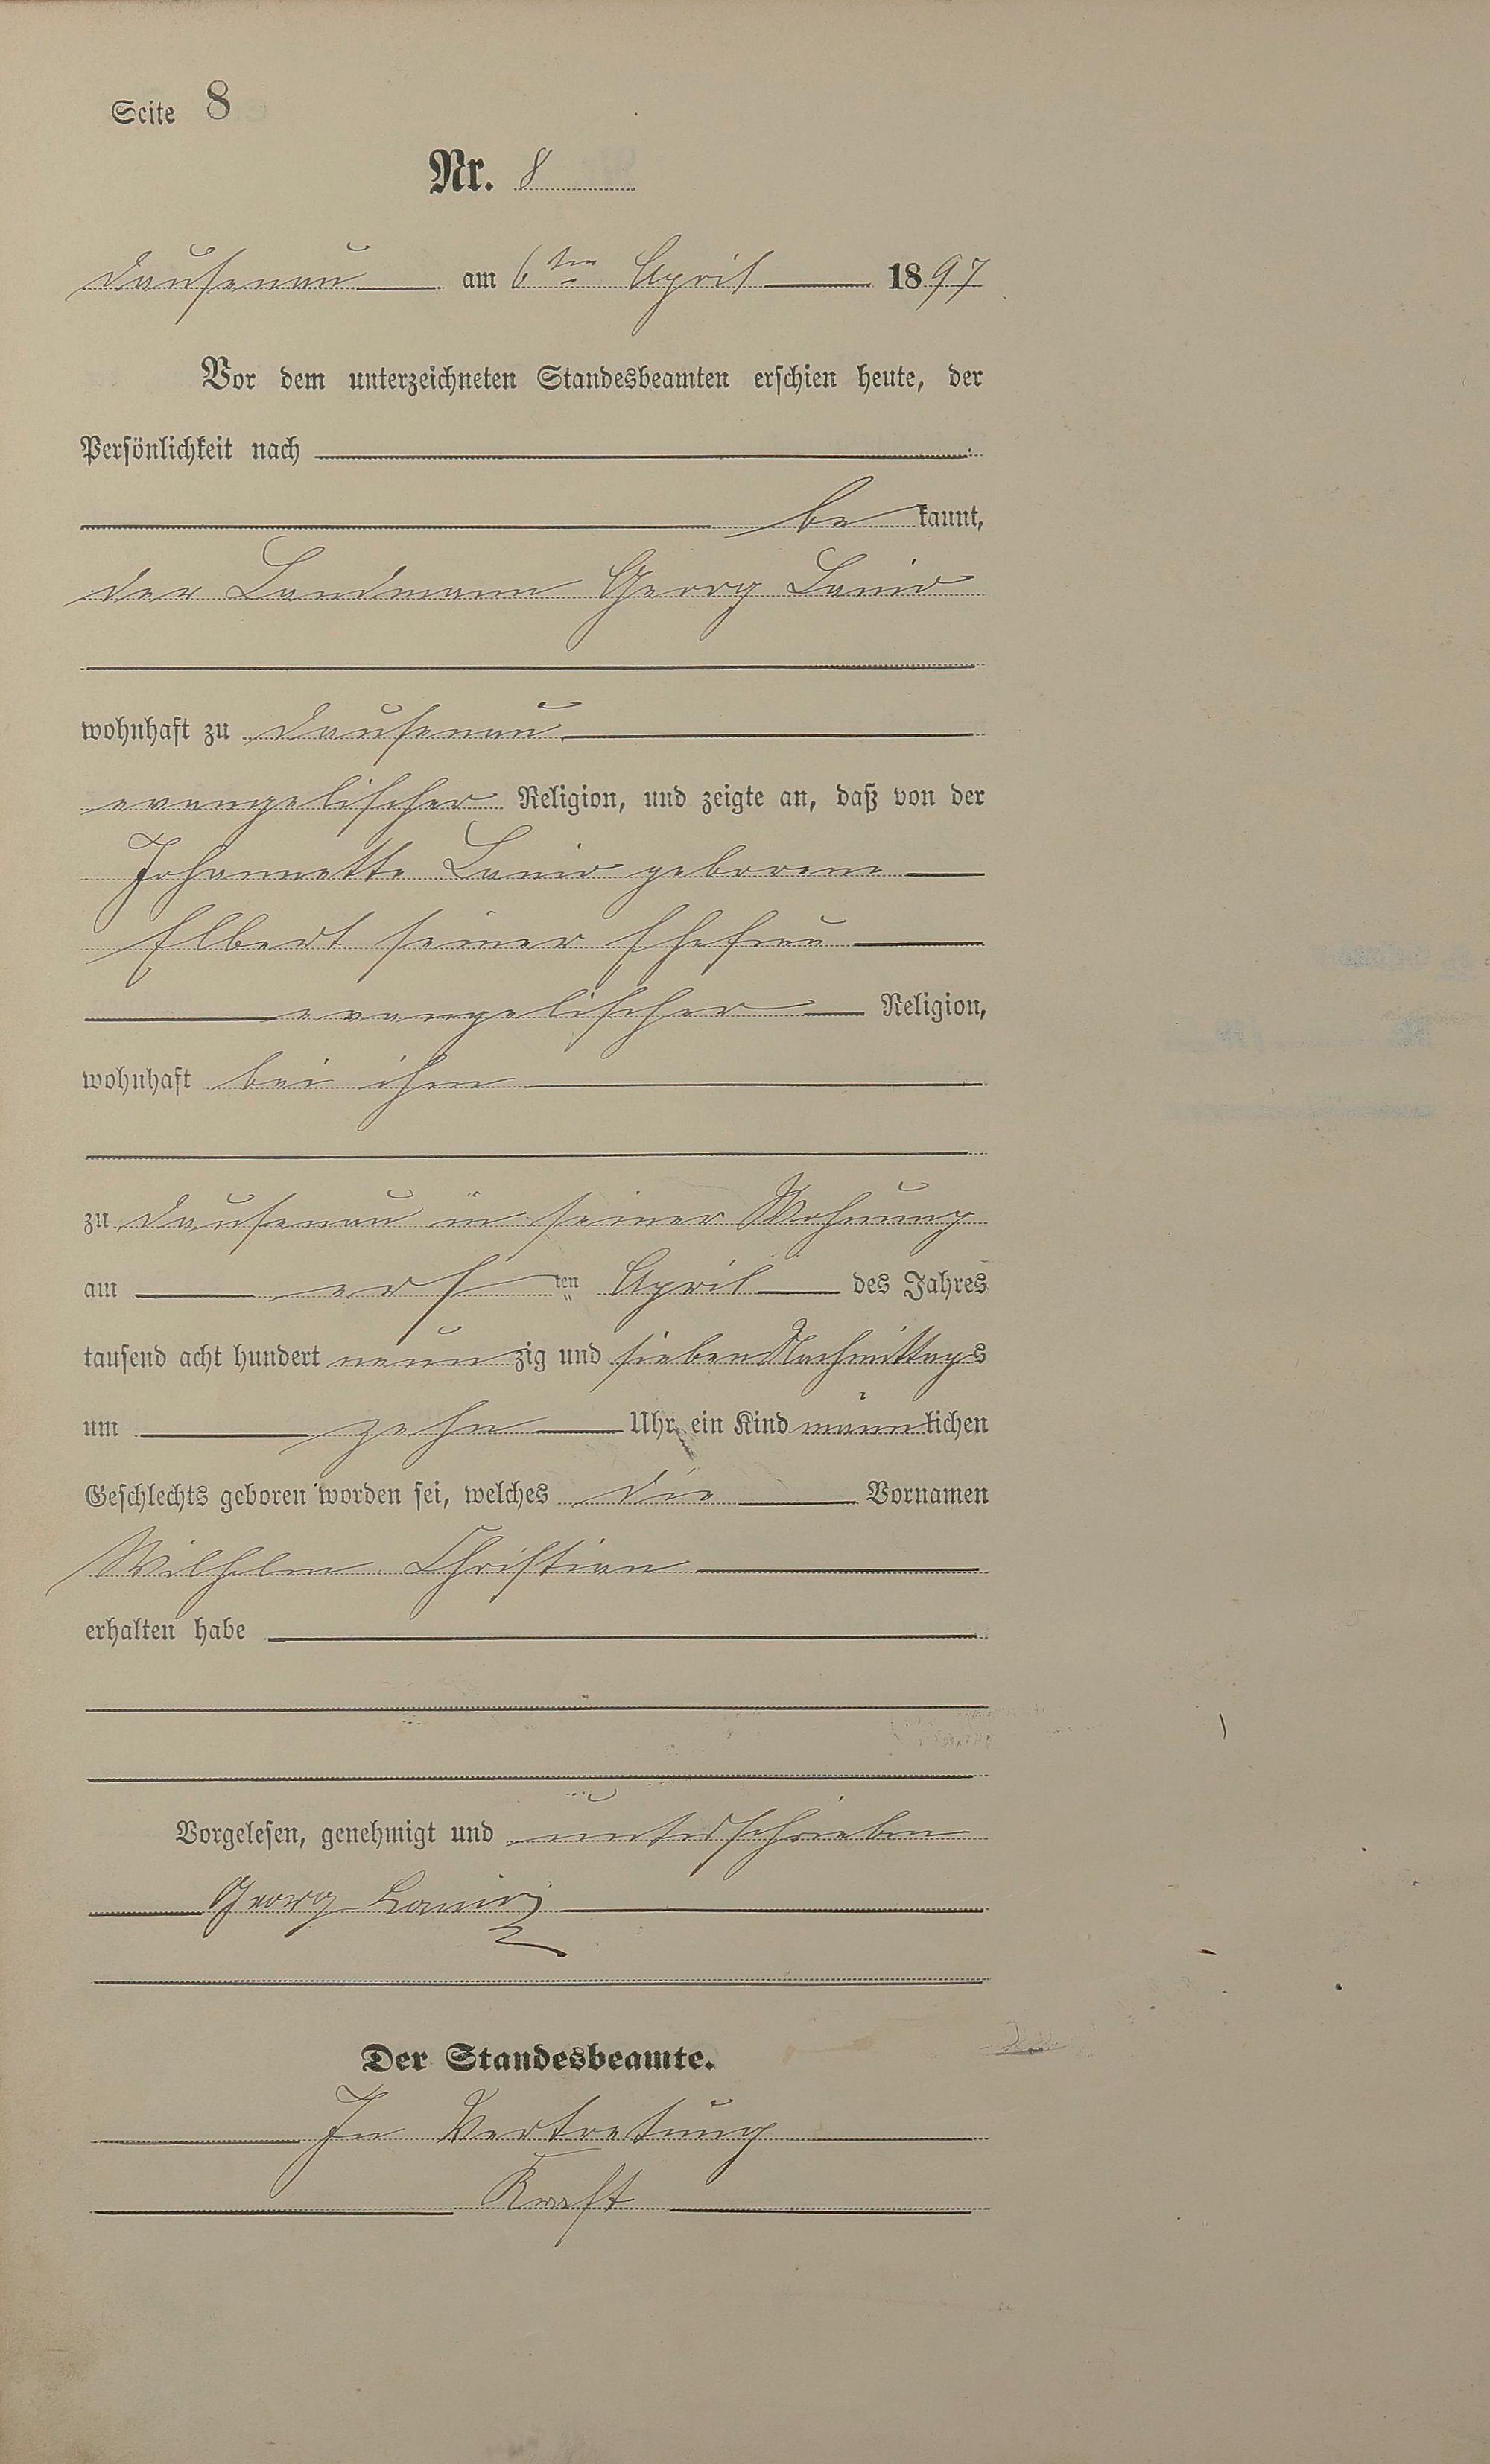 Seite 8
Nr. 8
Dausenau am 6ten April 1897
Vor dem unterzeichneten Standesbeamten erschien heute, der
Persönlichkeit nach
be kannt,
der Landmann Georg Lanio
wohnhaft zu Dausenau
evangelischer Religion, und zeigte an, daß von der
Johannette Lanio geborene
Elbert seiner Ehefrau
evangelischer Religion,
wohnhaft bei ihm
zu Dausenau in seiner Wohnung
am ersten April des Jahres
tausend acht hundert neunzig und sieben Nachmittags
um zehn Uhr ein Kind männlichen
Geschlechts geboren worden sei, welches die Vornamen
Wilhelm Christian
erhalten habe
Vorgelesen, genehmigt und unterschrieben
Georg Lanio
Der Standesbeamte.
In Vertretung
Kraft